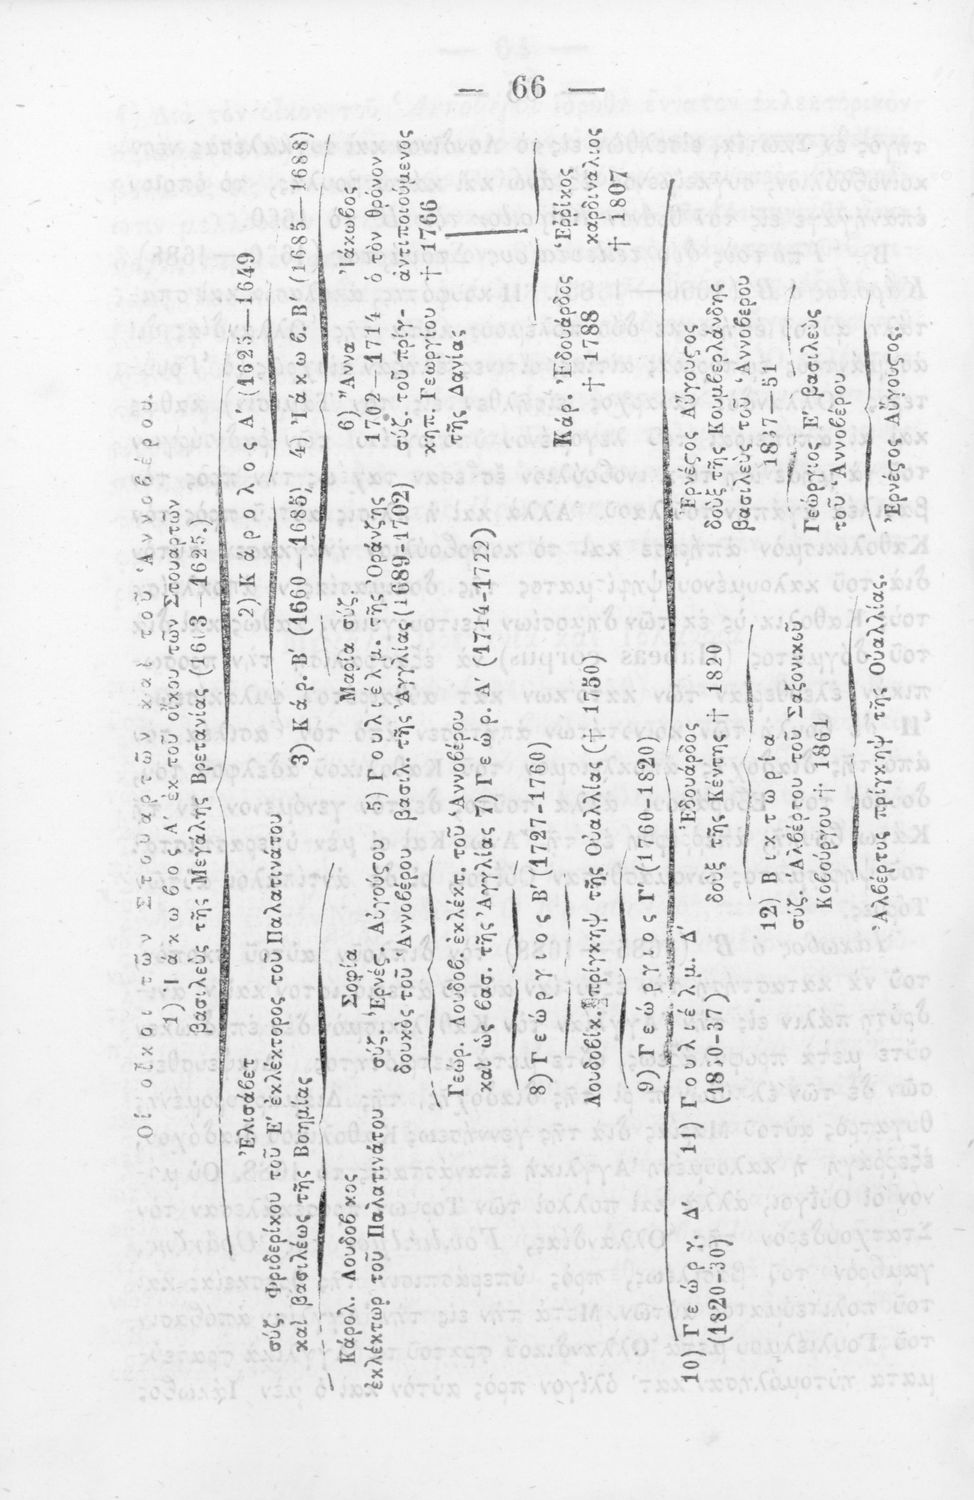 — 66 —
Οἱ οἶκοι τῶν Στουαρτῶν καὶ τοῦ Ἀννοβέρου.
1) Ἰάκωβος Α΄ ἐκ τοῦ οἴκου τῶν Στουαρτῶν
βασιλεὺς τῆς Μεγάλης Βρετανίας (1603—1625.)
Ἐλισάβετ
σύζ. Φριδερίκου τοῦ Ε΄ ἐκλέκτορος τοῦ Παλατινάτου
καὶ βασιλέως τῆς Βοημίας
2) Κάρολος Α΄ (1625—1649
3) Κάρ. Β΄ (1660—1685)
4) Ἰακωβ. Β΄ (1685—1688)
Κάρολ. Λουδοβῖκος
ἐκλέκτωρ τοῦ Παλατινάτου
Σοφία
σύζ. Ἐρνές. Αὐγούστου
δουκὸς τοῦ Ἀννοβέρου
Μαρία σύζ.
5) Γουλιέλμ. τῆς Ὀράνζης
βασιλ. τῆς Ἀγγλίας (1689-1702)
6) Ἄννα
1702—1714
σύζ. τοῦ πρίγ-
κηπ. Γεωργίου
τῆς Δανίας.
Ἰάκωβος
ὁ τὸν θρόνον
ἀντιποιούμενος
† 1766
Γεώρ. Λουδοβ. ἐκλέκτ. τοῦ Ἀννοβέρου
καὶ ὡς βασ. τῆς Ἀγγλίας 7) Γεώρ. Α΄ (1714-1722)
8) Γεώργιος Β΄ (1727-1760)
Κάρ. Ἐδουάρδος
† 1788
Ἐρῖκος
καρδινάλιος
† 1807
Λουδοβίκ. πρίγκηψ τῆς Οὐαλλίας († 1750)
9) Γεώργιος Γ΄ (1760-1820)
10) Γεώργ. Δ΄
(1820-30)
11) Γουλιέλμ. Δ΄
(1830-37)
Ἐδουάρδος
δοὺξ τῆς Κέντης † 1820
Ἐρνέςος Αὔγουςος
δοὺξ τῆς Κουμβερλάνδης
βασιλεὺς τοῦ Ἀννοβέρου
1837-51
12) Βικτωρία
σύζ. Ἀλβέρτου τοῦ Σαξονικοῦ
Κοβούργου † 1861
Γεώργιος Ε΄ βασιλεὺς
τοῦ Ἀννοβέρου
Ἀλβέρτος πρίγκηψ τῆς Οὐαλλίας.
Ἐρνέςος Αὔγουςος